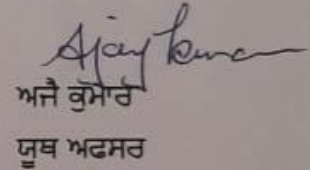 Ajay Kumar
ਅਜੈ ਕੁਮਾਰ
ਯੂਥ ਅਫਸਰ